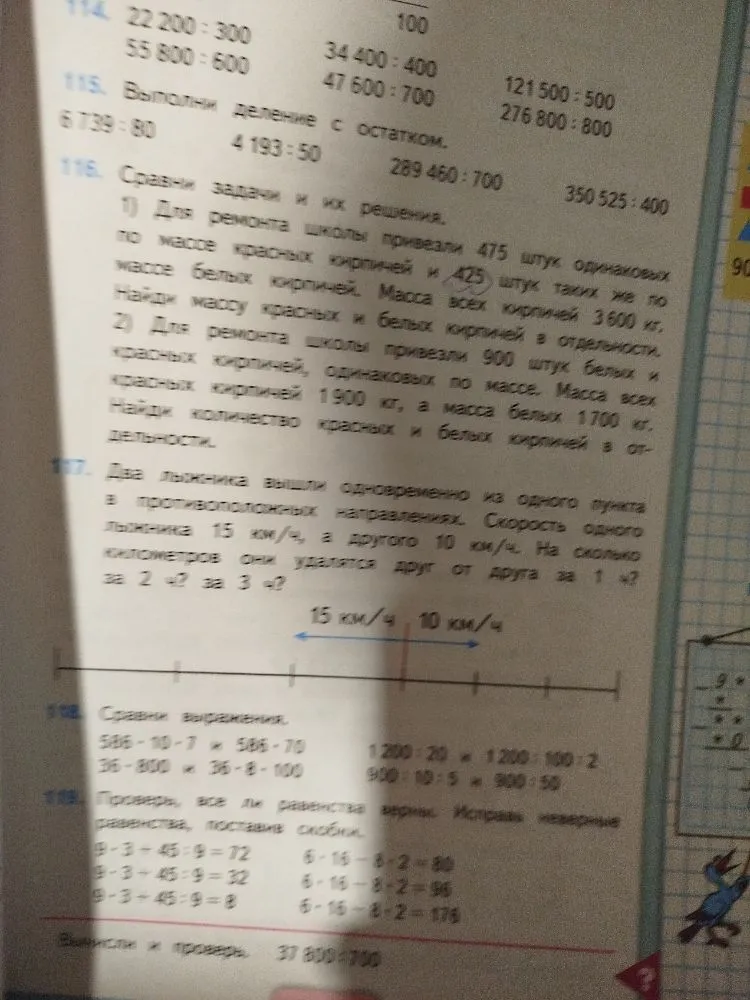 100
114. 22 200 : 300 34 400 : 400 121 500 : 500
55 800 : 600 47 600 : 700 276 800 : 800
115. Выполни деление с остатком.
6 739 : 80 4 193 : 50 289 460 : 700 350 525 : 400
116. Сравни задачи и их решения.
1) Для ремонта школы привезли 475 штук одинаковых
по массе красных кирпичей и 425 штук таких же по
массе белых кирпичей. Масса всех кирпичей 3 600 кг.
Найди массу красных и белых кирпичей в отдельности.
2) Для ремонта школы привезли 900 штук белых и
красных кирпичей, одинаковых по массе. Масса всех
красных кирпичей 1 900 кг, а масса белых 1 700 кг.
Найди количество красных и белых кирпичей в от-
дельности.
117. Два лыжника вышли одновременно из одного пункта
в противоположных направлениях. Скорость одного
лыжника 15 км/ч, а другого 10 км/ч. На сколько
километров они удалятся друг от друга за 1 ч?
за 2 ч? за 3 ч?
15 км/ч 10 км/ч
118. Сравни выражения.
586 · 10 · 7 и 586 · 70 1 200 : 20 и 1 200 : 100 : 2
36 · 800 и 36 · 8 · 100 900 : 10 : 5 и 900 : 50
119. Проверь, все ли равенства верны. Исправь неверные
равенства, поставив скобки.
9 · 3 + 45 : 9 = 72 6 · 16 − 8 · 2 = 80
9 · 3 + 45 : 9 = 32 6 · 16 − 8 · 2 = 96
9 · 3 + 45 : 9 = 8 6 · 16 − 8 · 2 = 176
Вычисли и проверь. 37 800 : 700
?
90
9*
*
**
*0